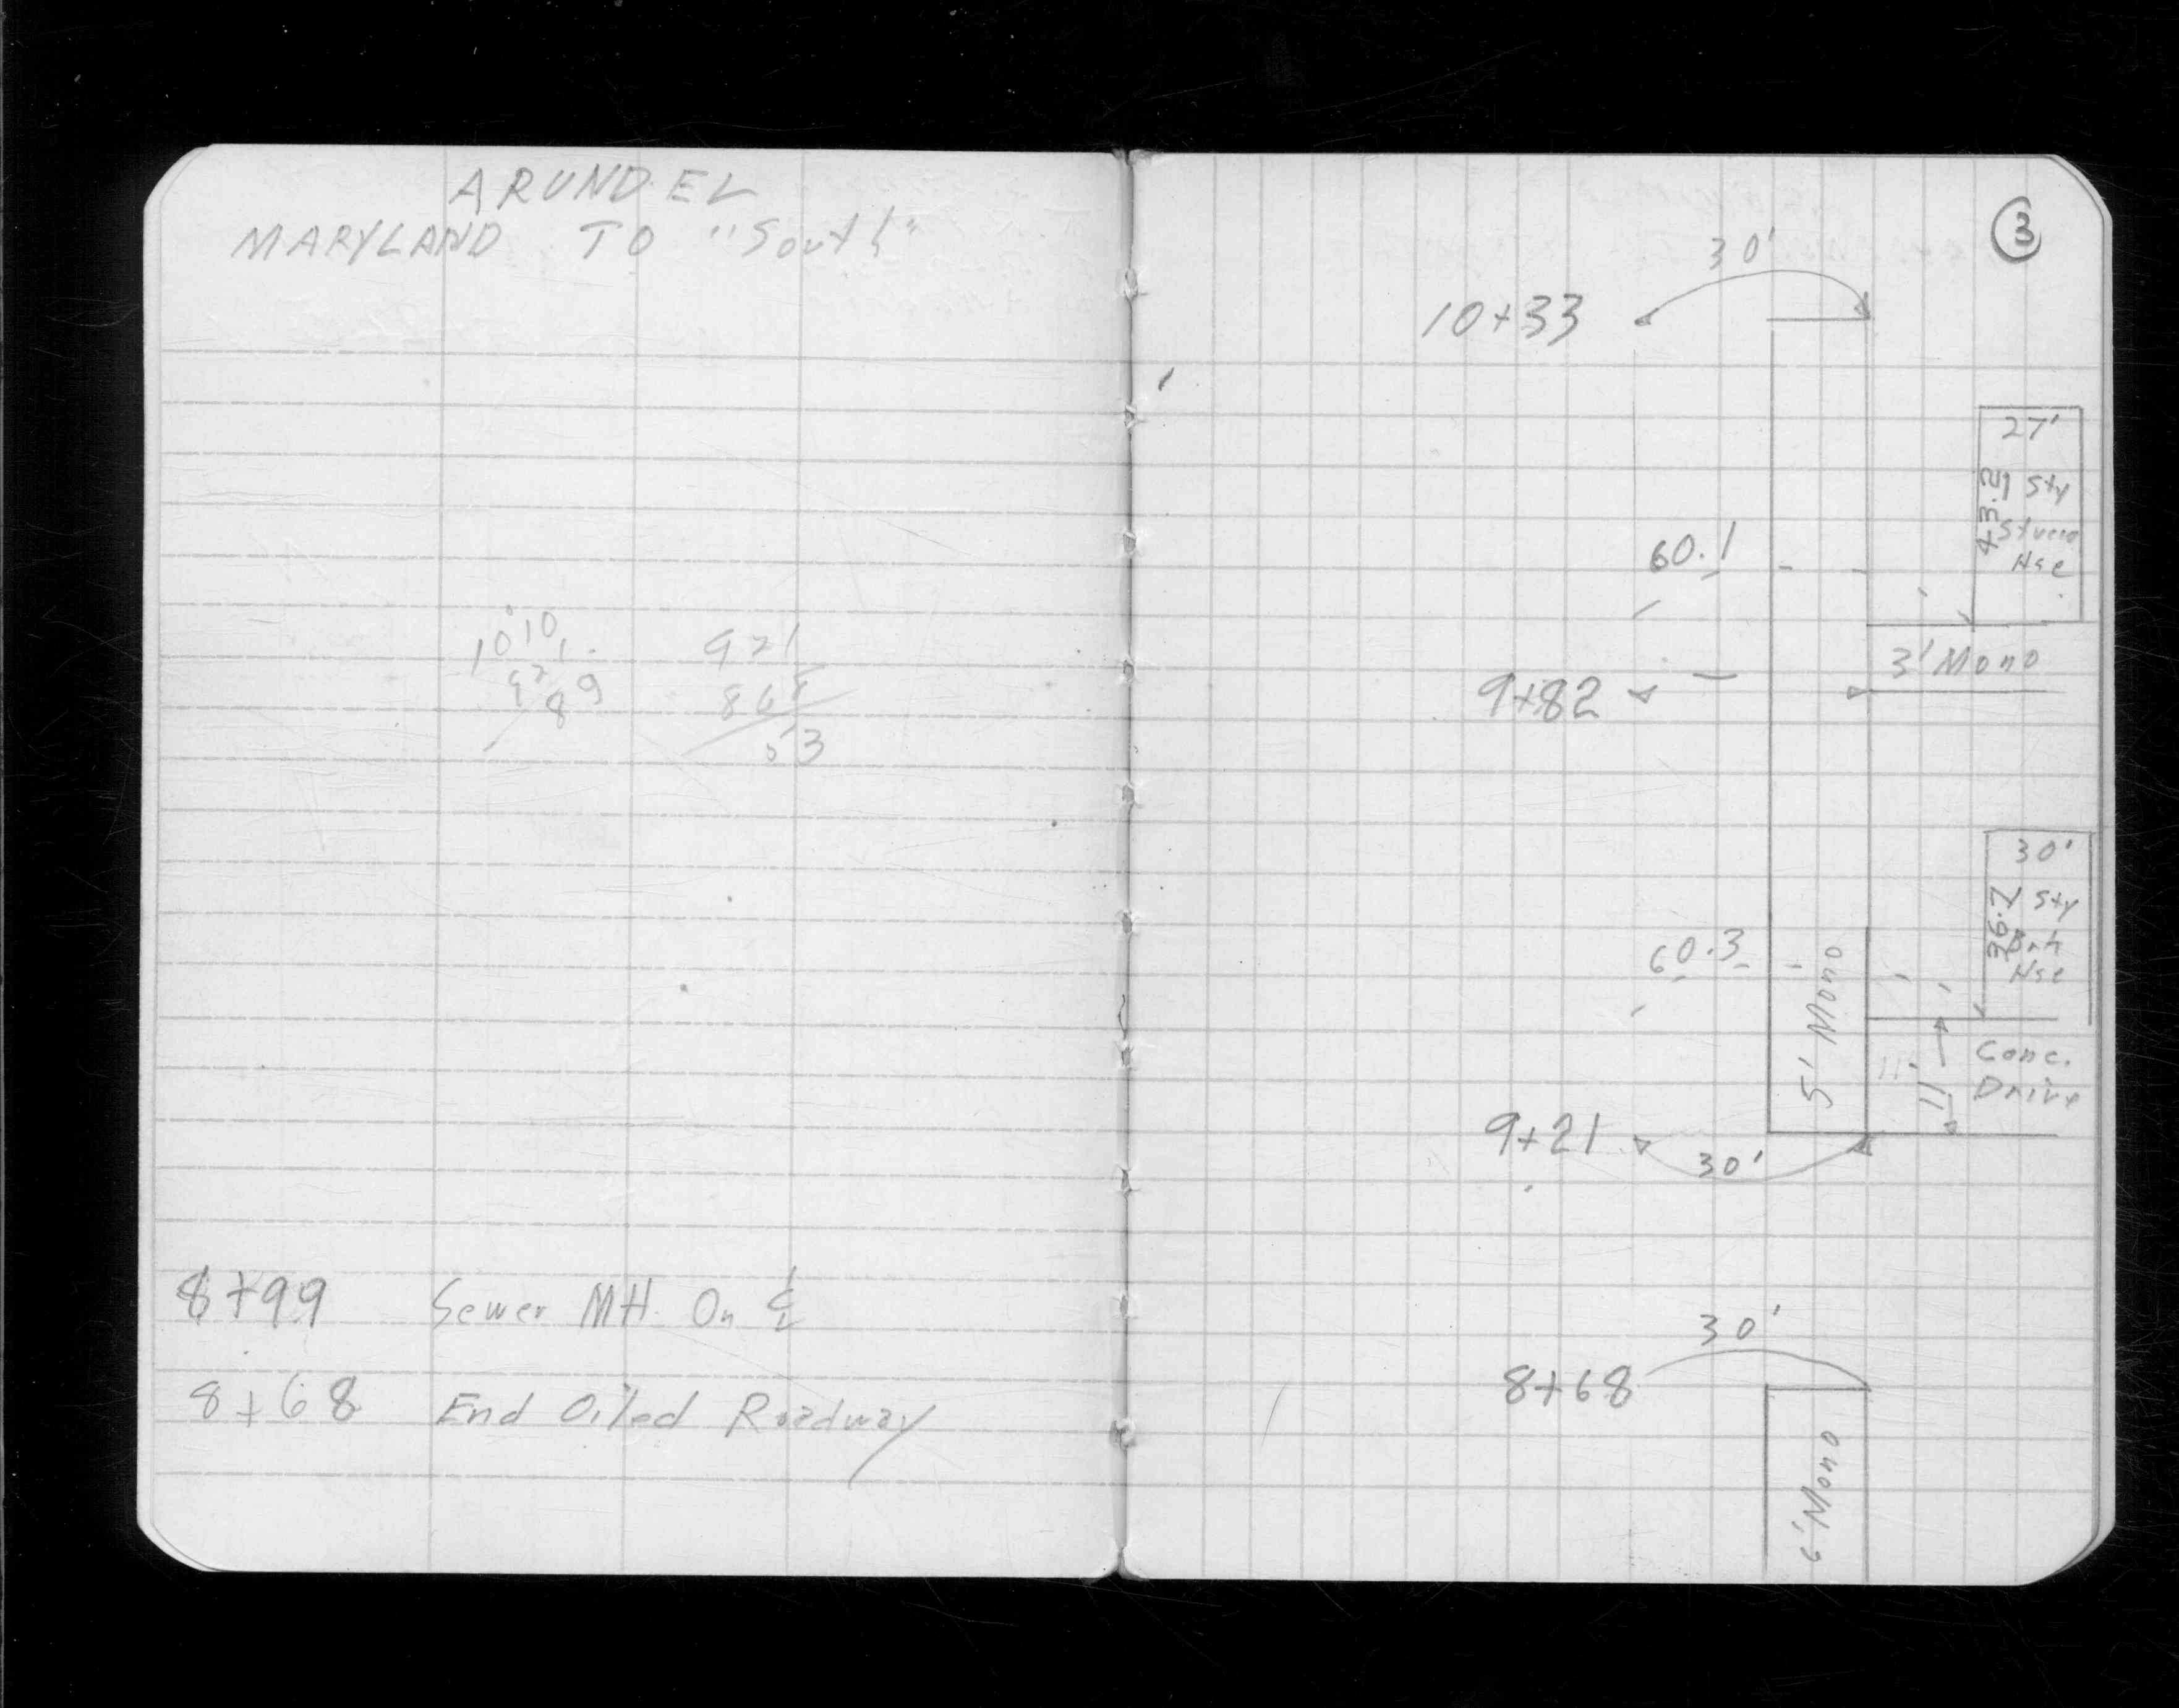 ARUNDEL
MARYLAND TO "South"
1010
921
89
921
868
53
8+99 Sewer MH On ℄
8+68 End Oiled Roadway
3
30'
10+33
27'
43.2
1 Sty
Stucco
Hse
60.1
3' Mono
9+82
30'
36.7
1 Sty
Hse
60.3
5' Mono
11'
11'
Conc.
Drive
9+21
30'
30'
8+68
Mono